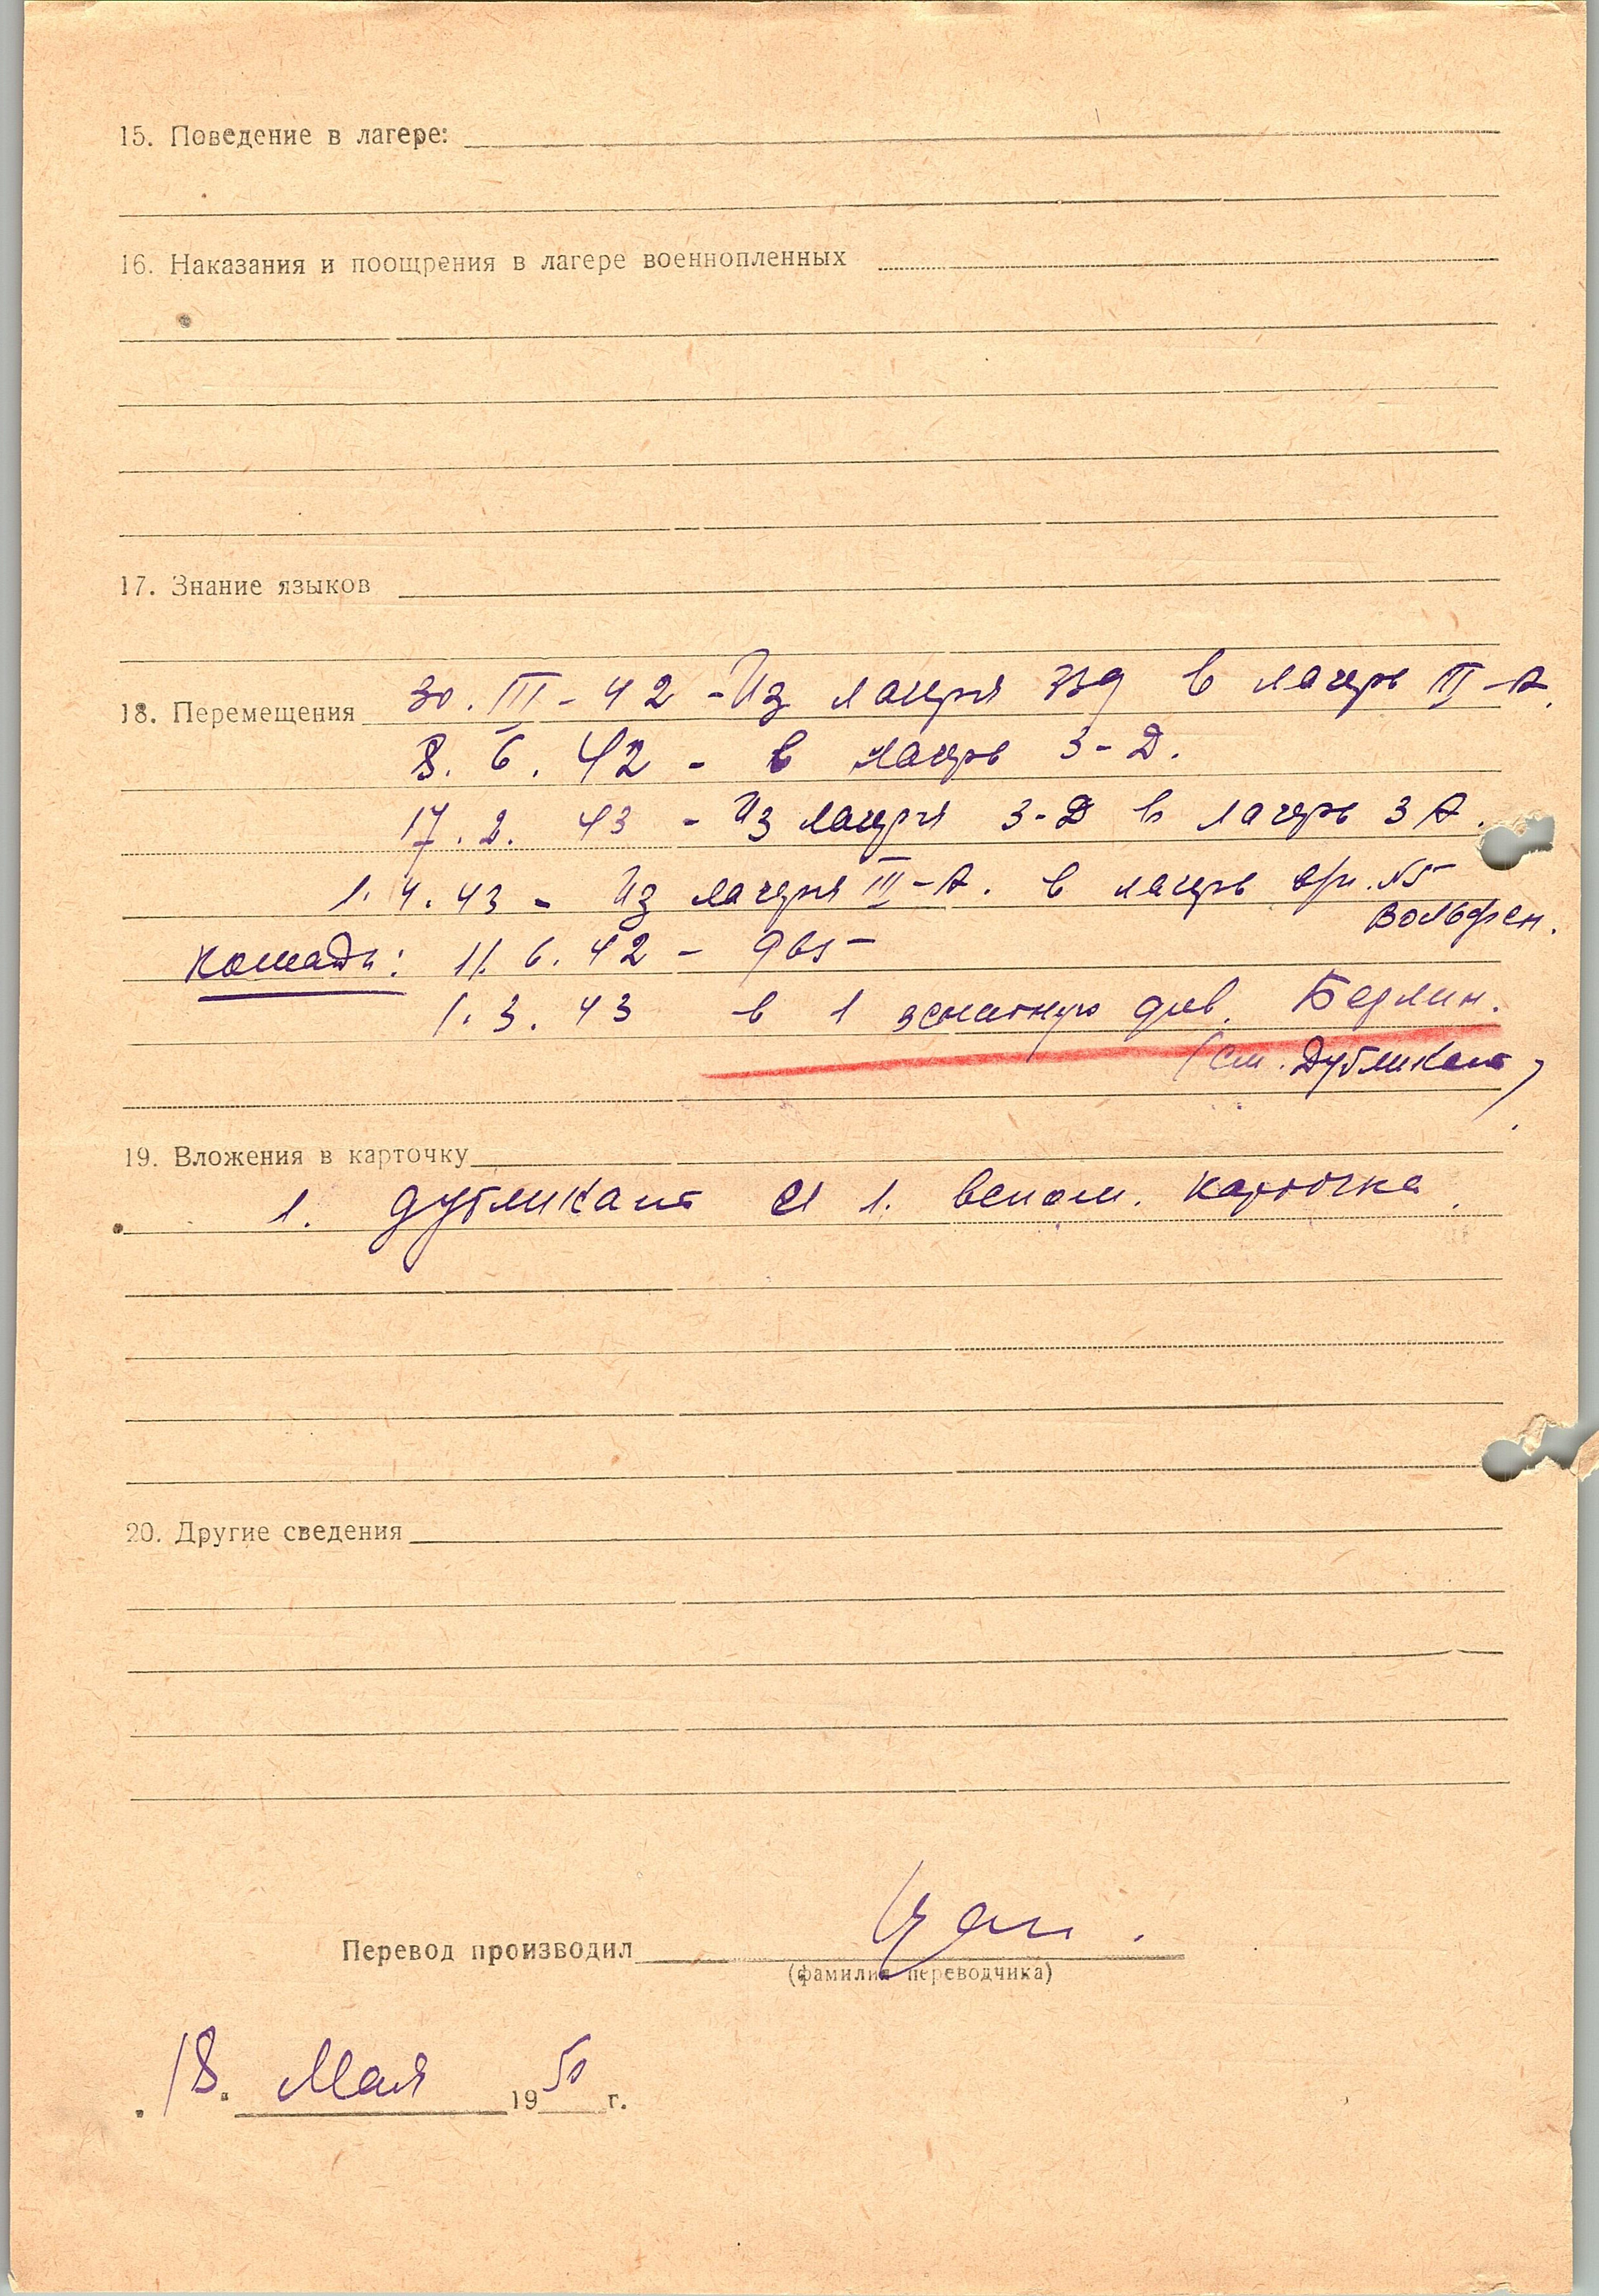 15. Поведение в лагере:
16. Наказания и поощрения в лагере военнопленных
17. Знание языков
18. Перемещения 30. III - 42 - Из лагеря 339 в лагерь II-А.
8. 6. 42 - в лагерь 3-Д.
17. 2. 43 - Из лагеря 3-Д в лагерь 3 А.
1. 4. 43 - Из лагеря III-А. в лагерь №5
Вольфен.
команды: 11. 6. 42 - 965
1. 3. 43 в 1 зенитную див. Берлин.
(см. Дубликат)
19. Вложения в карточку
1. дубликат и 1. вспом. карточка.
20. Другие сведения
Перевод производил
(фамилия переводчика)
18. Мая 1950 г.